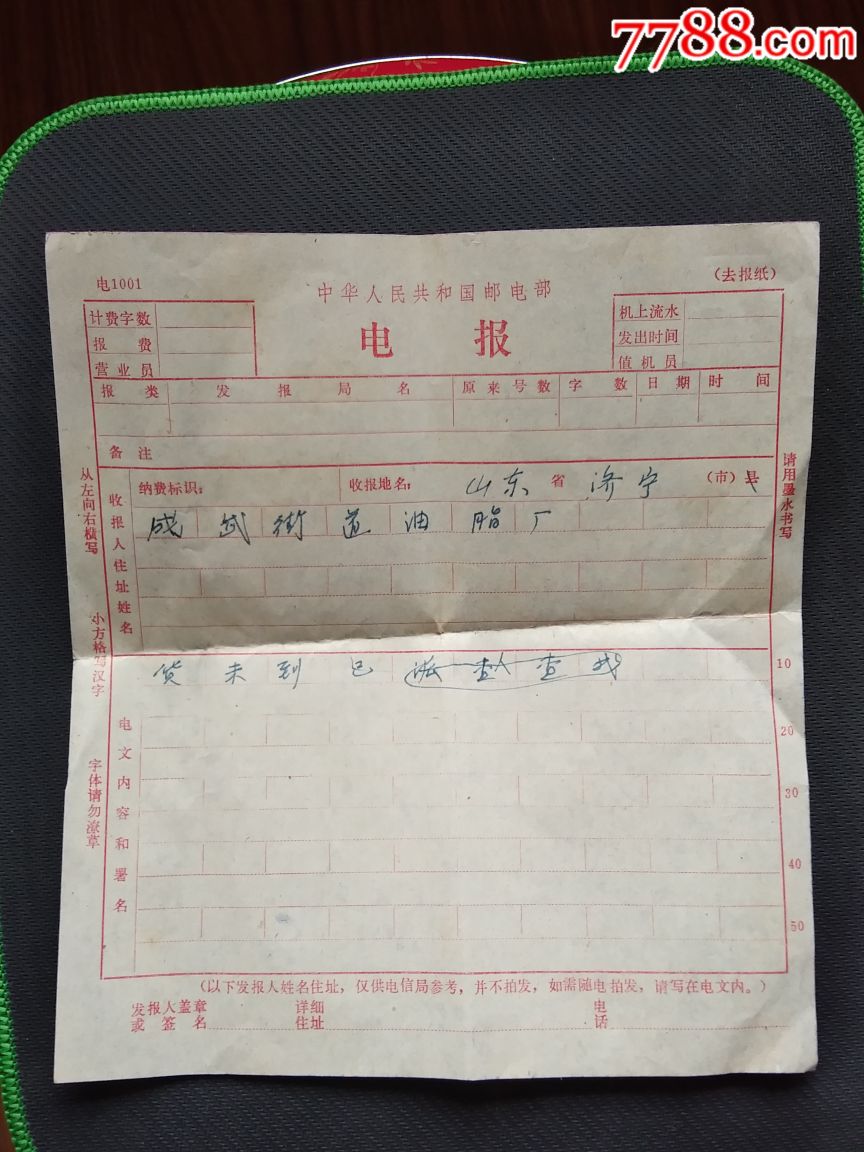 7788.com
电1001
(去报纸)
中华人民共和国邮电部
电报
计费字数
报费
营业员
机上流水
发出时间
值机员
报类 发报局名 原来号数 字数 日期 时间
备注
纳费标识: 收报地名: 山东 省 济宁 (市)县
收报人住址姓名
成武街道油脂厂
货未到已派人查找
电文内容和署名
10
20
30
40
50
从左向右横写
小方格写汉字
字体请勿潦草
请用墨水书写
(以下发报人姓名住址,仅供电信局参考,并不拍发,如需随电拍发,请写在电文内。)
发报人盖章 详细 电
或签名 住址 话